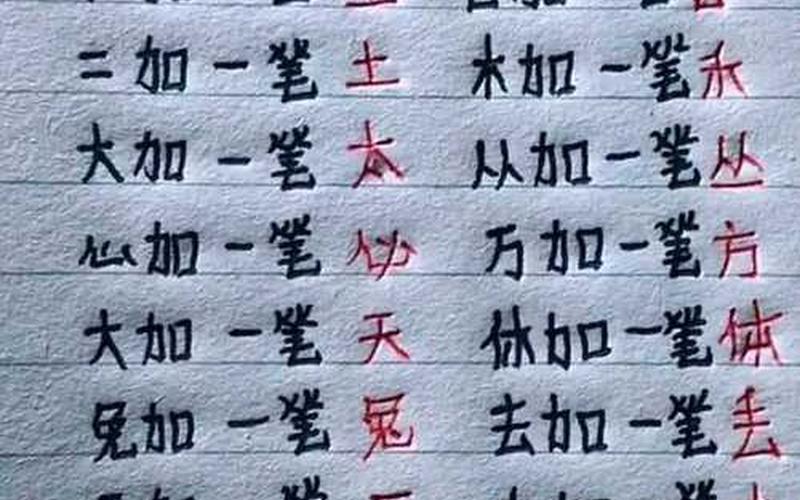 二加一笔 土 木加一笔禾
大加一笔 太 从加一笔丛
心加一笔 必 万加一笔方
大加一笔 天 休加一笔体
免加一笔 兔 去加一笔丢